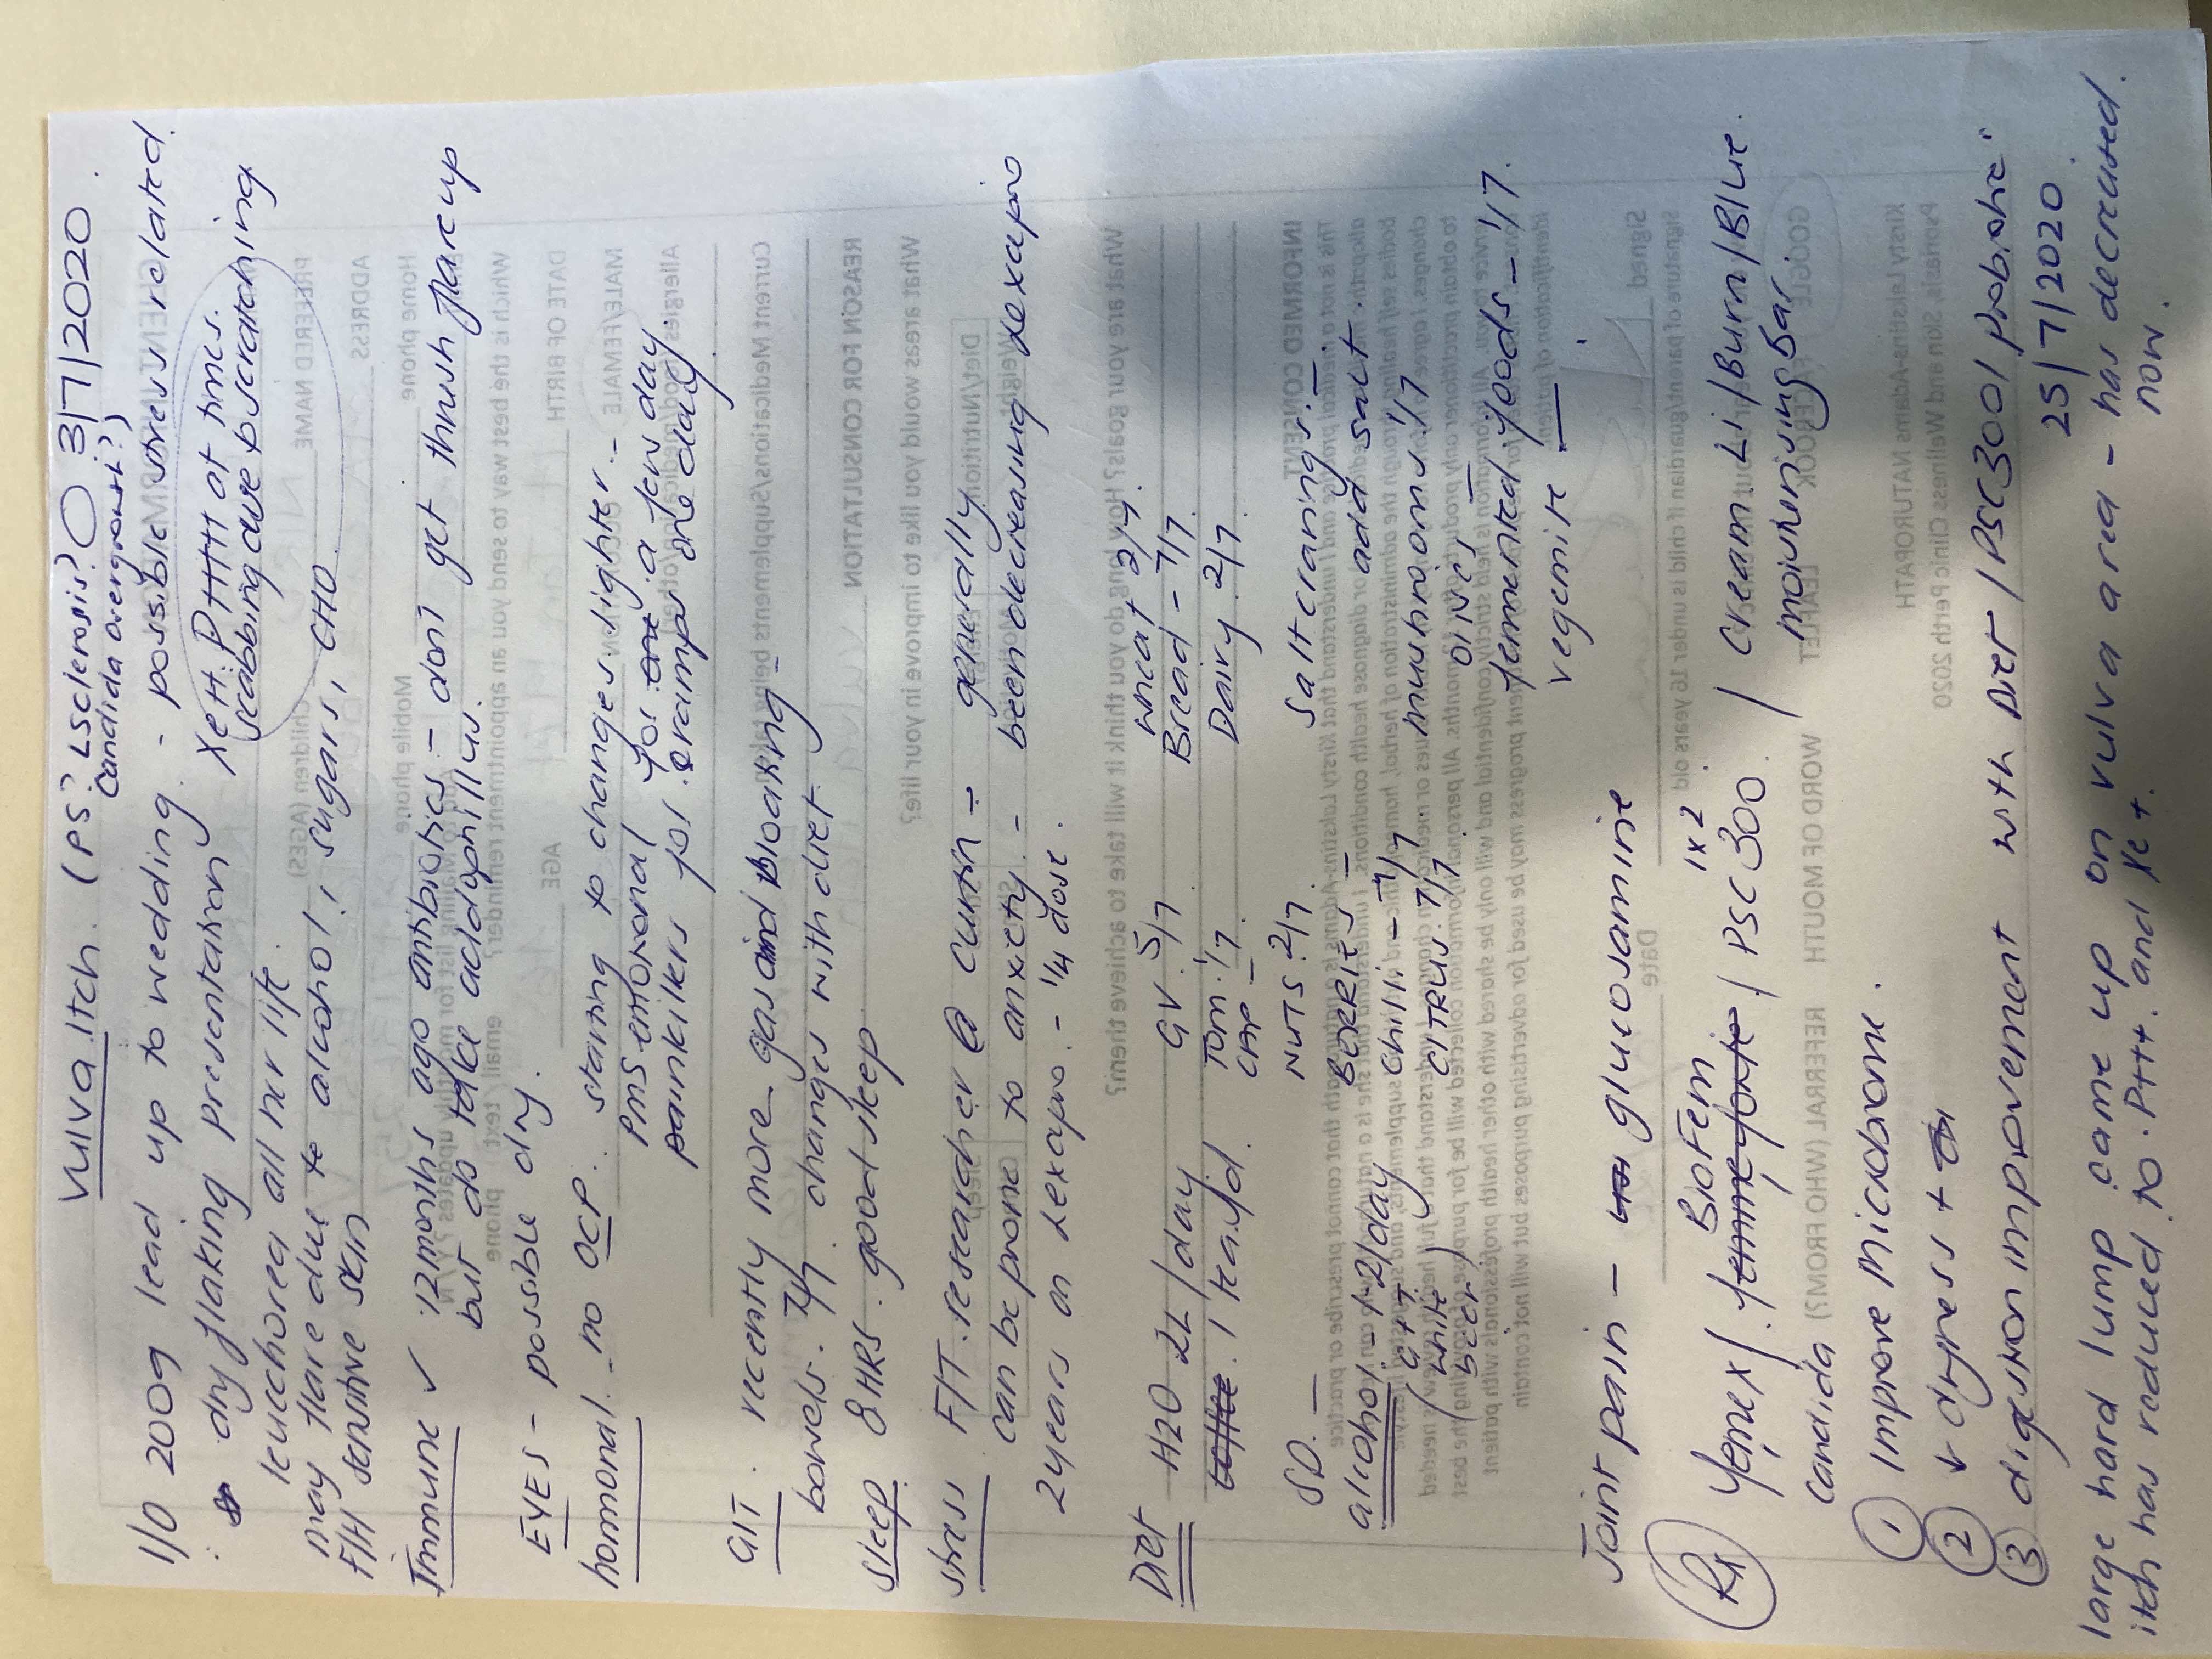 Vulva Itch. (PS? LSclerosis? O 3/7/2020.
Candida overgrowth?)
I/O 2009 lead up to wedding. - possible stress related.
dry flaking presentation Xe++. P++++ at times.
leuchorea all her life. scabbing due to scratching
may flare due to alcohol, sugars, CHO
F/H sensitive skin
Immune ✓ 12 months ago antibiotics - don't get thrush flare up
but do take acidophillus.
EYES - possible dry.
hormonal - no OCP. starting to changes. lighter -
PMS emotional for one a few day.
painkillers for cramps one daily.
GIT. recently more gas and bloating -
bowels. 7/7. changes with diet.
Sleep. 8 HRS. good sleep
Stress F/T. researcher @ Curtin - generally
can be prone to anxiety. - been decreasing Lexapro
2 years on Lexapro. - 1/4 dose.
Diet H2O 2L/day GV. 5/7 wheat 2/7.
coffee. 1 tea/d. Tom. 1/7 Bread - 7/7.
CAP - Dairy. 2/7
SD. — NUTS. 2/7 Salt cravings. -
alcohol - 1-2/day BERRIES - add salt.
G+T. Chilli - 4/7 mushrooms. 1/7
(white) CITRUS. 7/7. olives -
Beer fermented foods - 1/7.
vegemite -
Joint pain - glucosamine
1x2
BioFem
Rx Yemex / femme forte / PSC 300. / Cream Li/Burn/Blue.
candida moisturising bar.
1 Improve microbiome.
2 ↓ dryness +
3 digestion improvement with Diet / PSC300/ probiotic.
25/7/2020
large hard lump came up on vulva area - has decreased
itch has reduced to. P+++. and Xe+. now.